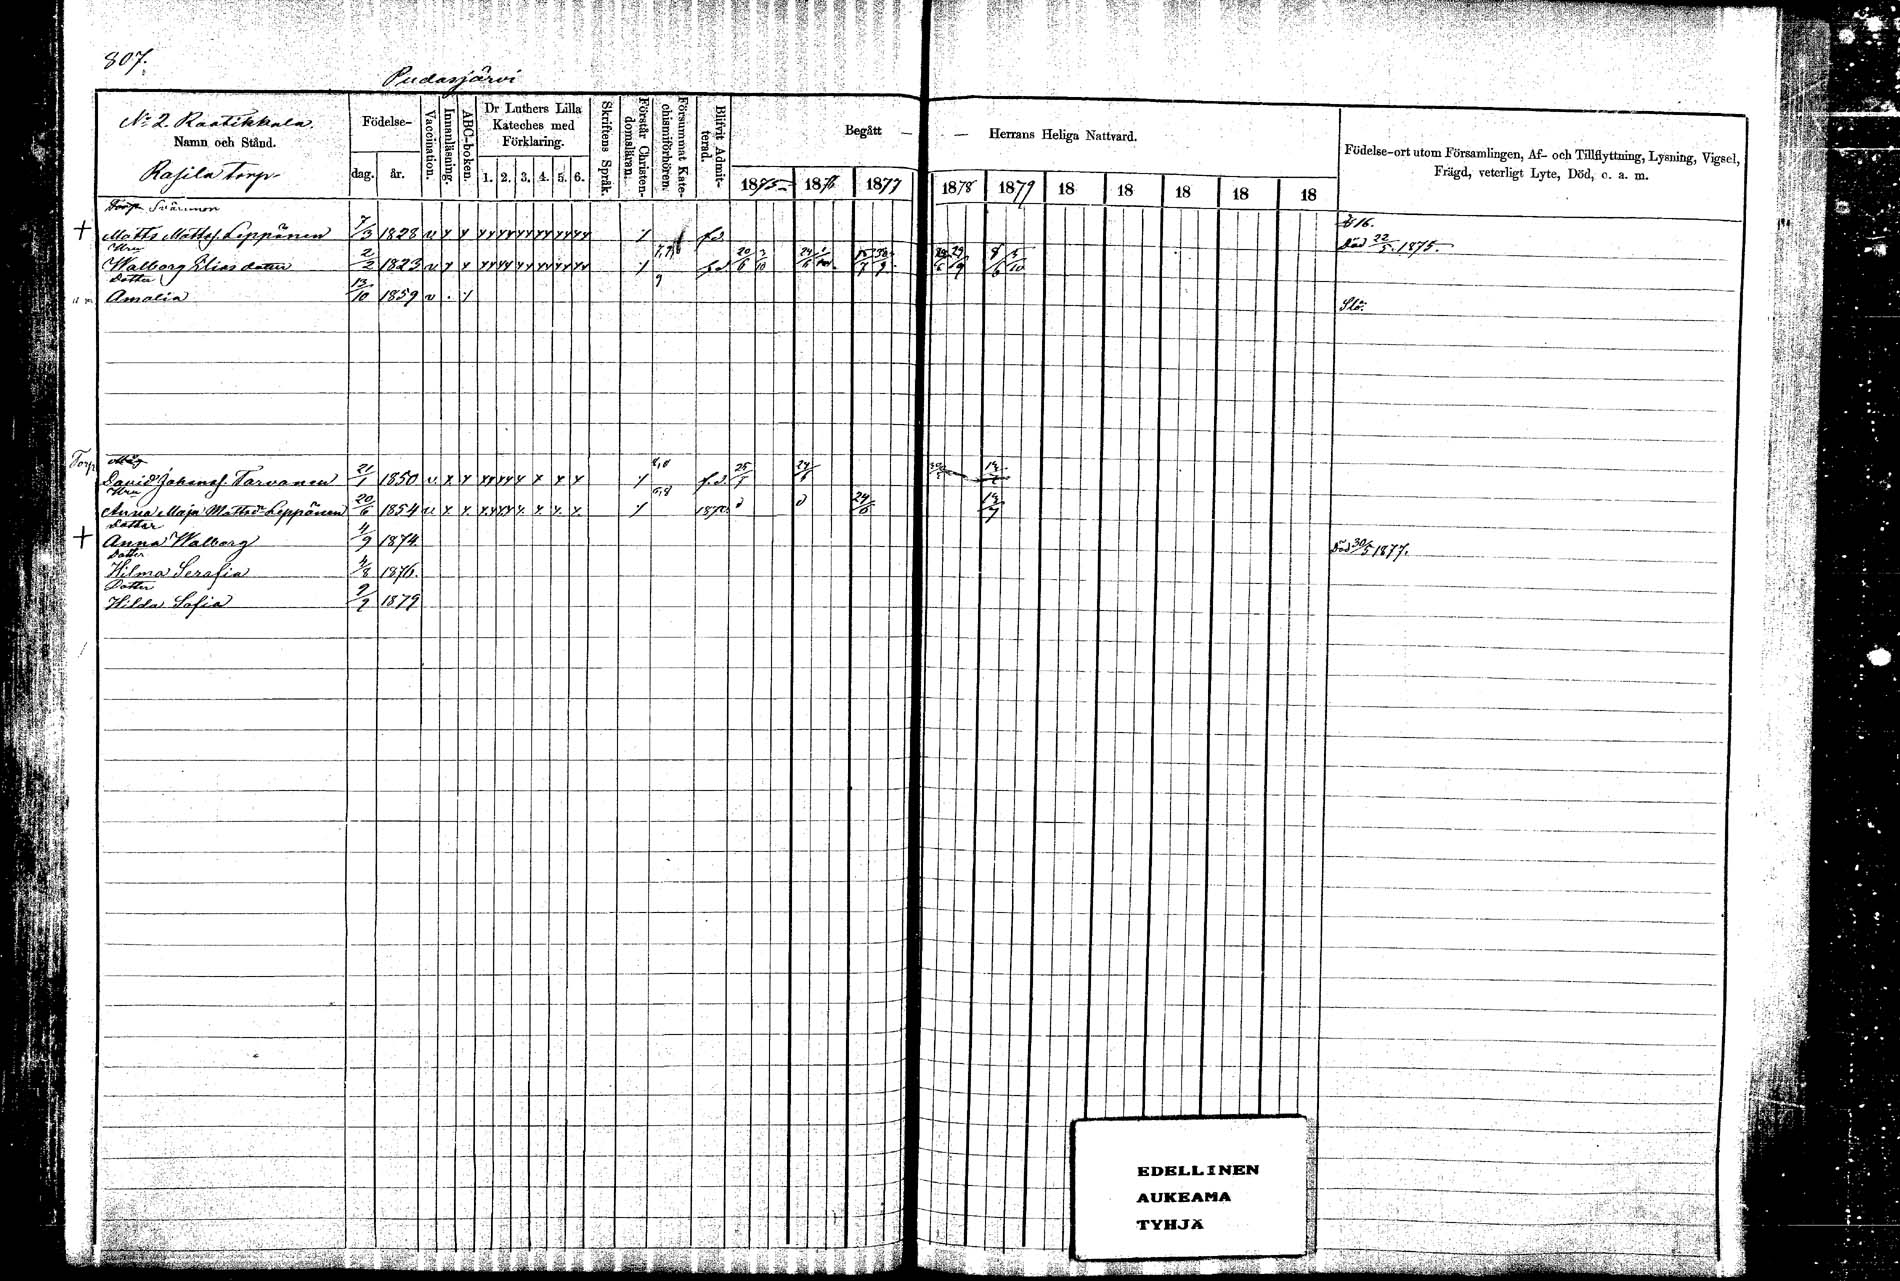 807.
Pudasjärvi
No 2. Raatikkala.
Namn och Stånd.
Rasila Torp
Födelse-
dag. år.
Vaccination.
Innanläsning.
ABC-boken.
Dr Luthers Lilla
Kateches med
Förklaring.
1. 2. 3. 4. 5. 6.
Skriftens Språk.
Förstår Christen-
domsläran.
Försummat Kate-
chismiförhören.
Blifvit Admit-
terad.
Begått — — Herrans Heliga Nattvard.
1875 1876 1877 1878 1879 18 18 18 18 18
Födelse-ort utom Församlingen, Af- och Tillflyttning, Lysning, Vigsel,
Frägd, veterligt Lyte, Död, o. a. m.
Torp
+ Matts Mattss. Leppänen 7/3 1828 f.d.
Död 22/5 1875.
Hru
Walborg Elias dotter 2/2 1823 v f.d.
Dotter
Amalia 13/10 1859 v
Slö.
Torp Måg
David Johanss. Tarvanen 21/1 1850 v. f.d.
Hru
Anna Maja Mattsdr Leppänen 20/6 1854 24/6
Dotter
+ Anna Walborg 4/9 1874
Död 30/5 1877.
Dotter
Hilma Serafia 4/8 1876.
Dotter
Hilda Sofia 9/7 1879
EDELLINEN
AUKEAMA
TYHJÄ